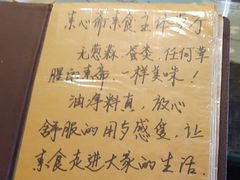 素心斋素食主张
无葱蒜、蛋类、任何荤
腥的素斋,一样美味!
油净料真,放心
舒服的用书感受,让
素食走进大家的生活.